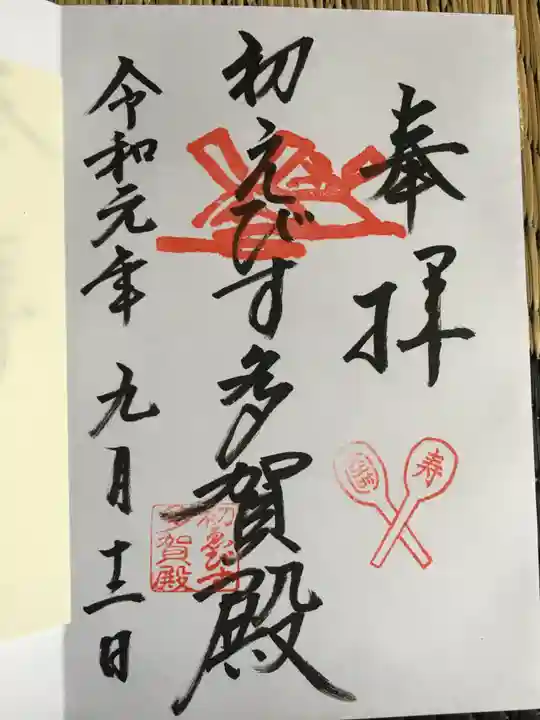 奉拝
寿
初えびす多賀殿
初ゑびす
多賀殿
令和元年 九月十二日